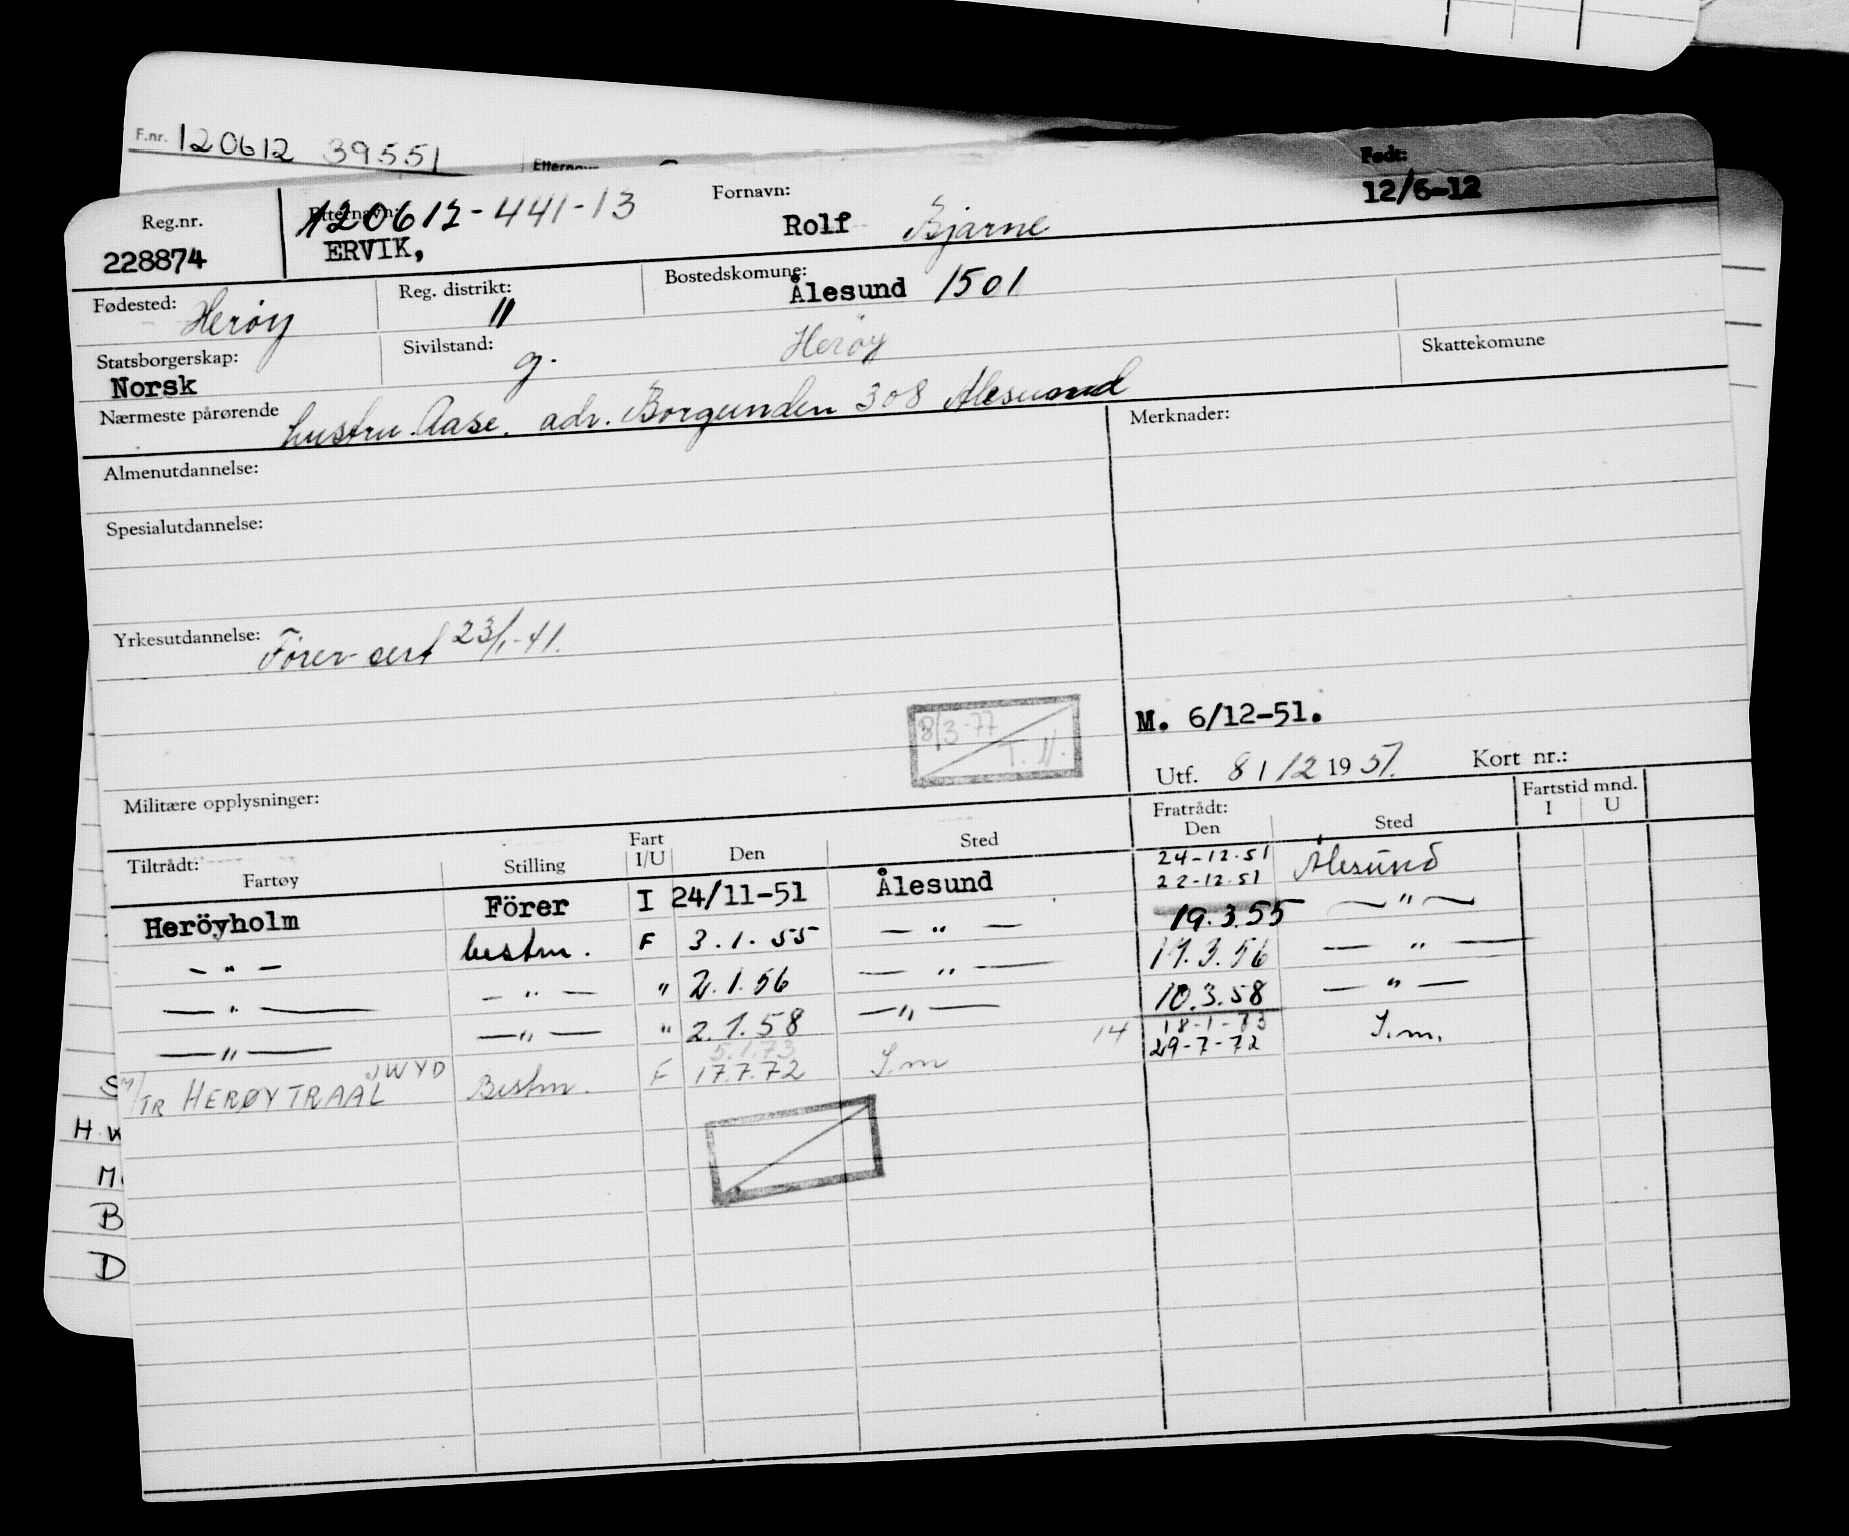 F.nr. 120612 39551
Reg.nr. Etternavn: 120612-441-13 Fornavn: Født:
228874 ERVIK, Rolf Bjarne 12/6-12
Fødested: Herøy Reg. distrikt: " Bostedskomune: Ålesund 1501
Statsborgerskap: Norsk Sivilstand: g. Herøy Skattekomune
Nærmeste pårørende hustru Aase. adr. Borgunden 308 Ålesund Merknader:
Almenutdannelse:
Spesialutdannelse:
Yrkesutdannelse: Förer cert 23/1-41.
8/3-77
M. 6/12-51.
Utf. 8 / 12 19 51. Kort nr.:
Militære opplysninger:
Tiltrådt: Fratrådt: Fartstid mnd.
Fartøy Stilling Fart I/U Den Sted Den Sted I U
24-12-51
Heröyholm Förer I 24/11-51 Ålesund 22-12-51 Ålesund
— " — bestm. F 3.1.55 — " — 19.3.55 — " —
— " — — " — " 2.1.56 — " — 17.3.56 — " —
— " — — " — " 2.1.58 — " — 10.3.58 — " —
JWYD 5.1.73 14 18-1-73
M/TR HERØYTRAAL Bestm. F 17.7.72 S.m 29-7-72 S.m.
H
M
B
D